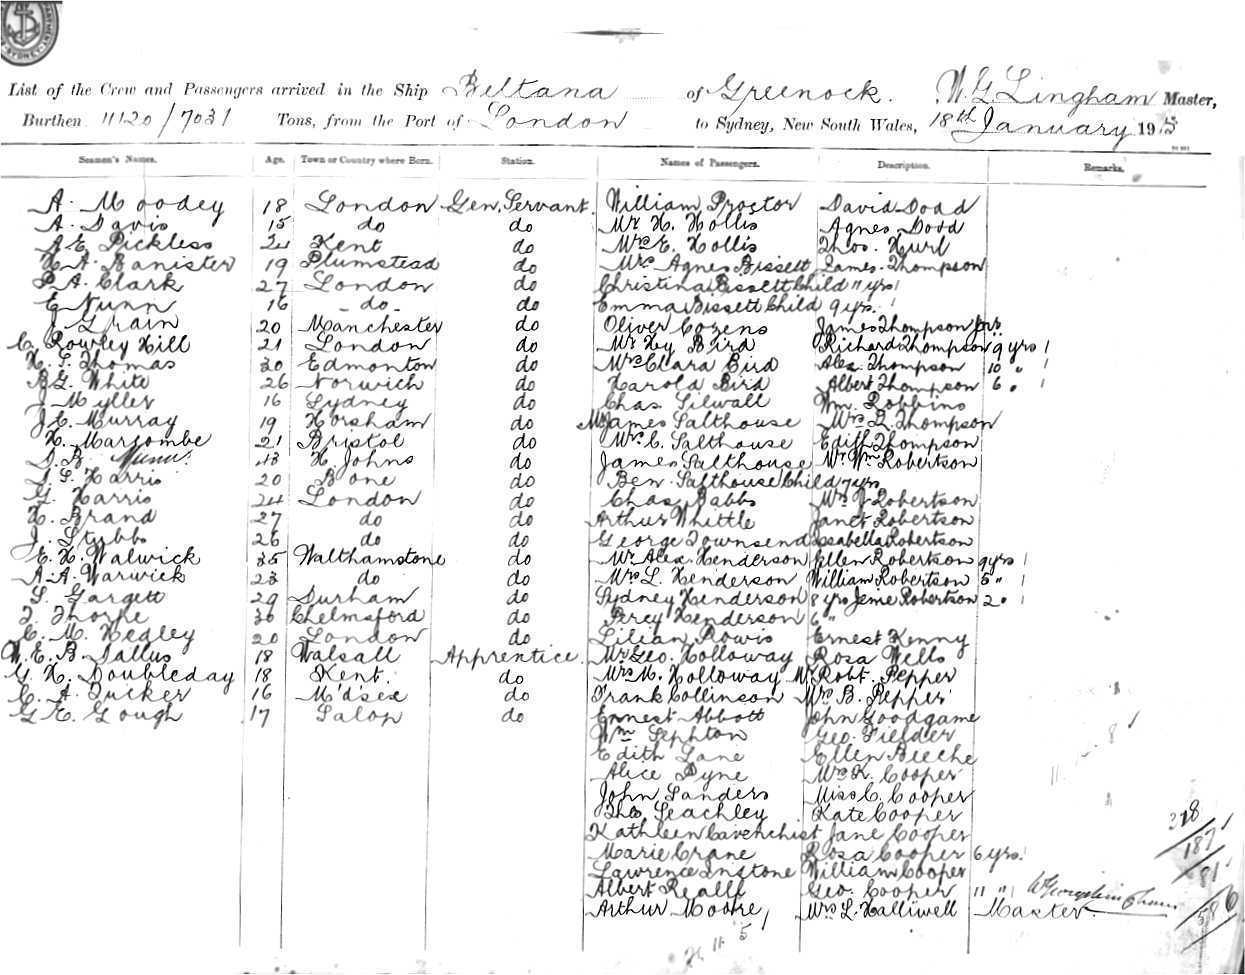 List of the Crew and Passengers arrived in the Ship Beltana of Greenock. W. G. Lingham Master,
Burthen 11120/7031 Tons, from the Port of London to Sydney, New South Wales, 18th January 1915
Seamen's Names. Age. Town or Country where Born. Station. Names of Passengers. Description. Remarks.
A. Moodey 18 London Gen. Servant. William Proctor David Dodd
A. Davis 15 do do Mr H. Hollis Agnes Dodd
A. E. Pickless 24 Kent do Mrs E. Hollis Thos. Hurl
H. A. Banister 19 Plumstead do Mrs Agnes Bissett James Thompson
P. A. Clark 27 London do Christina Bissett Child 11 yrs 1
E. Nunn 16 - do - do Emma Bissett Child 9 yrs. 1
J. Grain 20 Manchester do Oliver Cozens James Thompson jnr
C. Rowley Hill 21 London do Mr Hy Bird Richard Thompson 9 yrs 1
H. G. Thomas 30 Edmonton do Mrs Clara Bird Alex. Thompson 10 " 1
B. G. White 26 Norwich do Harold Bird Albert Thompson 6 " 1
J. Myller 16 Sydney do Chas. Silwall Wm. Robbins
J. C. Murray 19 Horsham do Mr James Salthouse Mrs L. Thompson
H. Marcombe 21 Bristol do Mrs C. Salthouse Edith Thompson
S. B. Munn 43 H. Johns do James Salthouse Mr Wm Robertson
S. G. Harris 20 Bone do Ben Salthouse Child 7 yrs
G. Harris 24 London do Chas. Babbs Mrs J. Robertson
H. Brand 27 do do Arthur Whittle Janet Robertson
J. Stubbs 26 do do George Townsend Isabella Robertson
E. H. Walwick 35 Walthamstone do Mr Alex Henderson Ellen Robertson 9 yrs 1
A. A. Warwick 23 do do Mrs L. Henderson William Robertson 5 " 1
S. Gargett 29 Durham do Sydney Henderson 8 yrs Jemie Robertson 2 " 1
T. Thorke 30 Chelmsford do Percy Henderson 6 "
C. M. Hedley 20 London do Lilian Rowis Ernest Kenny
W. E. B. Sallus 18 Walsall Apprentice. Mr Geo. Holloway Rosa Wells
G. H. Doubleday 18 Kent. do Mrs M. Holloway Mr Robt. Pepper
C. A. Tucker 16 M'd'sex do Frank Collinson Mrs B. Pepper
G. E. Gough 17 Salop do Ernest Abbott John Goodgame
Wm Sephton Geo. Fielder
Edith Lane Ellen Beeche
Alice Pyne Mrs K. Cooper
John Sanders Miss C. Cooper
Theo. Seachley Kate Cooper
Kathleen Cavenchist Jane Cooper
Marie Crane Rosa Cooper 6 yrs.
Lawrence Instone William Cooper
Albert Realff Geo. Cooper " "
Arthur Moore, Mrs L. Halliwell Master.
318
187
81
586